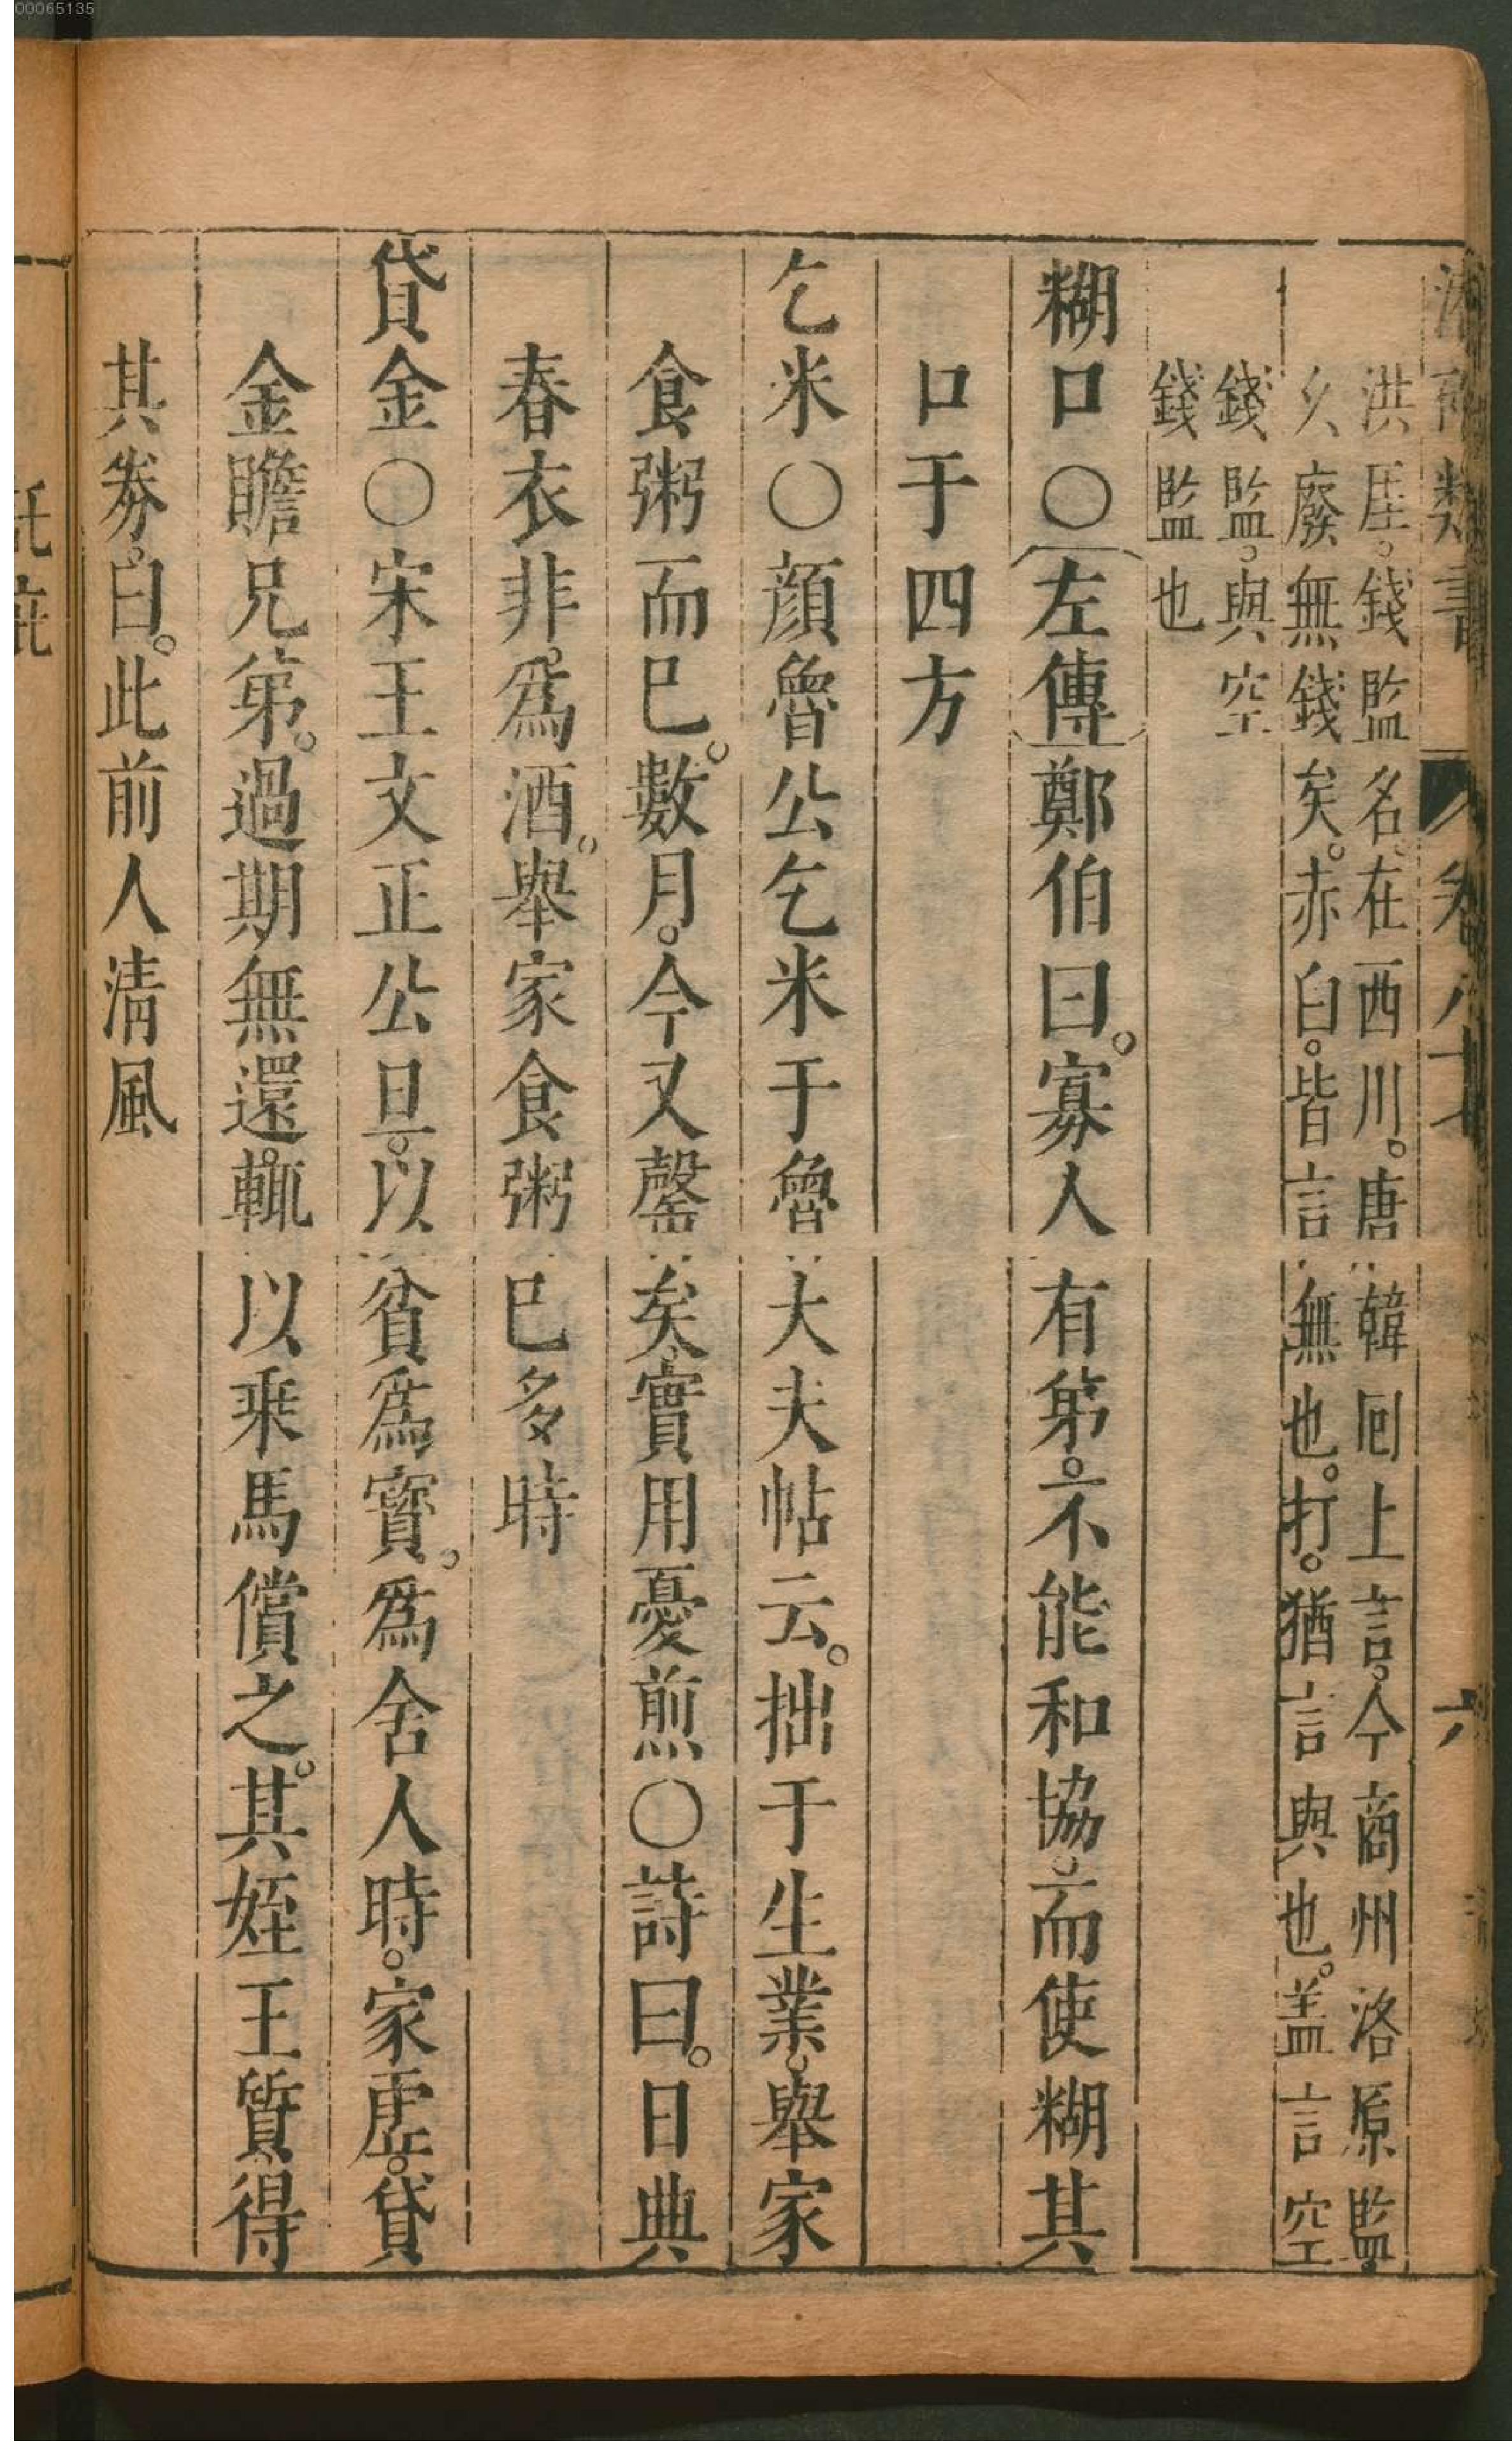 00065135
洪崖。錢監名。在西川。唐韓回上言。今商州洛原監。
久廢無錢矣。赤白。皆言無也。打。猶言與也。盖言空
錢監。與空
錢監也
糊口○左傳鄭伯曰。寡人有弟。不能和協。而使糊其
口于四方
乞米○顏魯公乞米于魯大夫帖云。拙于生業。舉家
食粥而已。數月。今又罄矣。實用憂煎○詩曰。日典
春衣非。爲酒。舉家食粥已多時
貸金○宋王文正公旦。以貧爲寳。爲舍人時。家虛。貸
金贍兄弟。過期無還。輒以乗馬償之。其姪王質得
其劵。曰。此前人清風